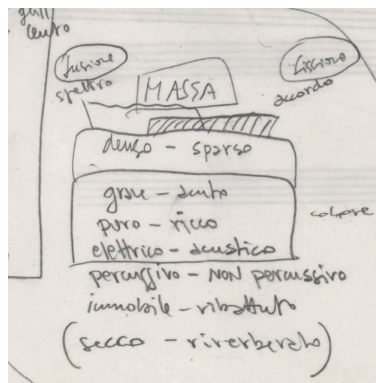 cento
fusione
spettro
MASSA
fissione
accordo
denso - sparso
grave - acuto
puro - ricco
colore
elettrico - acustico
percussivo - NON percussivo
immobile - ribattuto
(secco - riverberato)